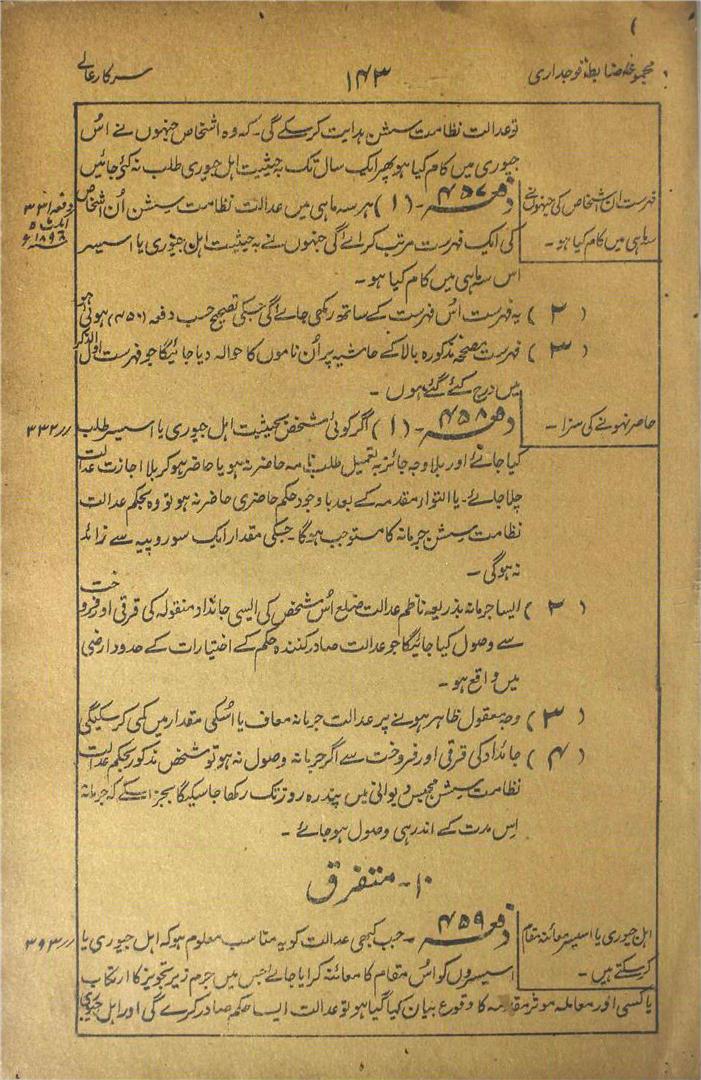 مجموعہ ضابطہ فوجداری
۱۴۳
سرکارعالے
تو عدالت نظامت سشن ہدایت کرسکے گی۔ کہ وہ اشخاص جنہوں نے اُس
جیوری میں کام کیا ہو پھر ایک سال تک بہ حیثیت اہل جیوری طلب نہ کئے جائیں
فہرست ان اشخاص کی جنہوں نے
سہ ماہی میں کام کیا ہو۔
دفعہ ۴۵۷۔ (۱) ہر سہ ماہی میں عدالت نظامت سشن اُن اشخاص
دفعہ ۳۳۱
ایکٹ ۵
۱۸۹۸ء
کی ایک فہرست مرتب کرائے گی جنہوں نے بہ حیثیت اہل جیوری یا اسیسر
اس سہ ماہی میں کام کیا ہو۔
(۲) یہ فہرست اُس فہرست کے ساتھ رکھی جائے گی جسکی تصحیح حسب دفعہ (۴۵۰) ہوئی ہو
(۳) فہرست مصححہ مذکورہ بالا کے حاشیہ پر اُن ناموں کا حوالہ دیا جائیگا جو فہرست اول الذکر
میں درج کئے گئے ہوں۔
حاضر نہونے کی سزا۔
دفعہ ۴۵۸۔ (۱) اگر کوئی شخص بحیثیت اہل جیوری یا اسیسر طلب
〃 ۳۳۲
کیا جائے اور بلا وجہ جائز بہ تعمیل طلب نامہ حاضر نہ ہو یا حاضر ہوکر بلا اجازت عدالت
چلا جائے۔ یا التوار مقدمہ کے بعد باوجود حکم حاضری حاضر نہ ہو تو وہ بحکم عدالت
نظامت سشن جرمانہ کا مستوجب ہوگا۔ جسکی مقدار ایک سو روپیہ سے زائد
نہ ہوگی۔
(۲) ایسا جرمانہ بذریعہ ناظم عدالت ضلع اُس شخص کی ایسی جائداد منقولہ کی قرقی اور فروخت
سے وصول کیا جائیگا جو عدالت صادر کنندہ حکم کے اختیارات کے حدود ارضی
میں واقع ہو۔
(۳) وجہ معقول ظاہر ہونے پر عدالت جرمانہ معاف یا اُسکی مقدار میں کمی کرسکیگی
(۴) جائداد کی قرقی اور فروخت سے اگر جرمانہ وصول نہ ہو تو شخص مذکور بحکم عدالت
نظامت سشن محبس دیوانی میں پندرہ روز تک رکھا جاسکیگا بجز اسکے کہ جرمانہ
اِس مدت کے اندر ہی وصول ہوجائے۔
۱۰۔ متفرق
اہل جیوری یا اسیسر معائنہ مقام
کرسکتے ہیں۔
دفعہ ۴۵۹۔ جب کبھی عدالت کو یہ مناسب معلوم ہو کہ اہل جیوری یا
〃 ۳۹۳
اسیسروں کو اُس مقام کا معائنہ کرایا جائے جس میں جرم زیر تجویز کا ارتکاب
یا کسی اور معاملہ موثر مقدمہ کا وقوع بیان کیا گیا ہو تو عدالت ایسا حکم صادر کرے گی اور اہل جیوری